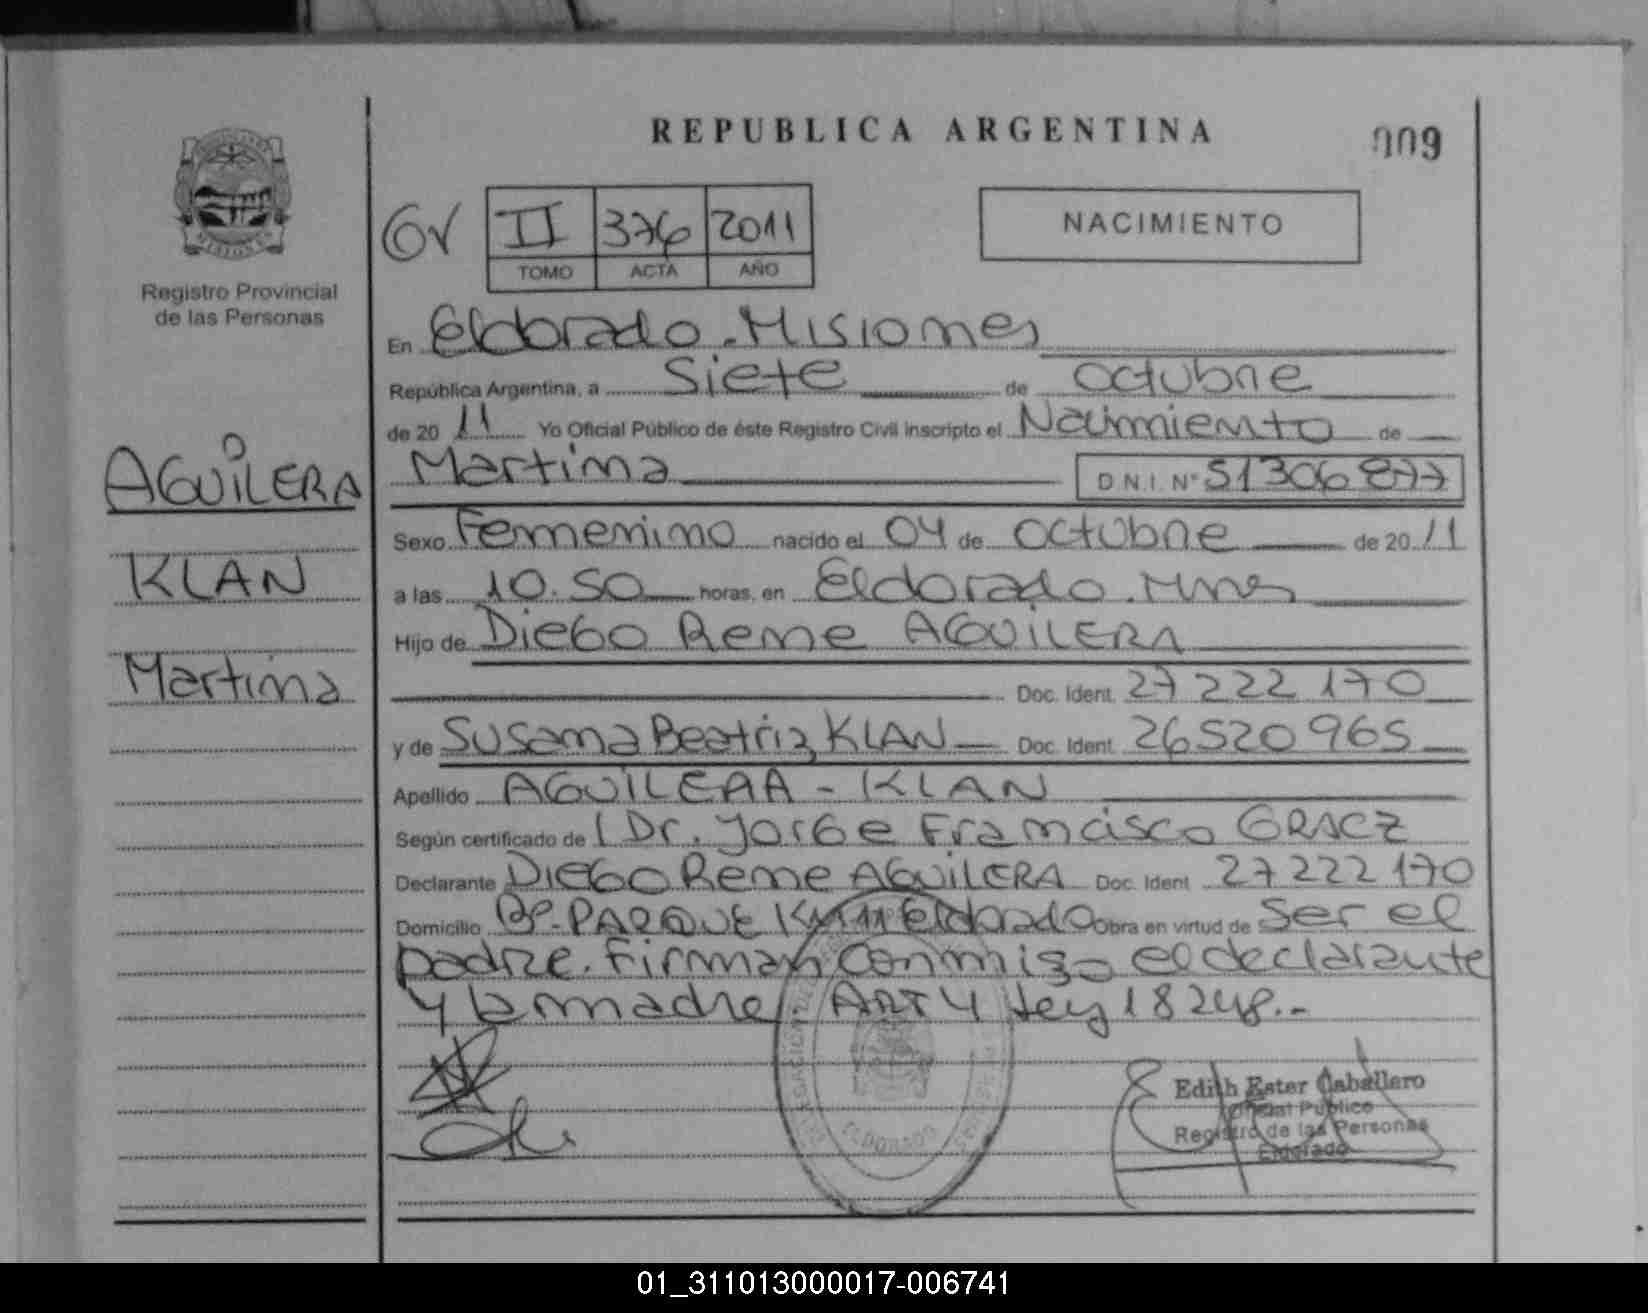 REPUBLICA ARGENTINA
009
Registro Provincial
de las Personas
GV II 376 2011
TOMO ACTA AÑO
NACIMIENTO
AGUILERA
KLAN
Martina
En Eldorado - Misiones
República Argentina, a Siete de octubre
de 2011 Yo Oficial Público de éste Registro Civil inscripto el Nacimiento de
Martina D.N.I. N° 51306877
Sexo Femenino nacido el 04 de octubre de 2011
a las 10.50 horas, en Eldorado. Mnes
Hijo de Diego Rene AGUILERA
Doc. Ident. 27222170
y de Susana Beatriz KLAN Doc. Ident. 26520965
Apellido AGUILERA - KLAN
Según certificado de Dr. Jorge Francisco GRACZ
Declarante Diego Rene AGUILERA Doc. Ident 27222170
Domicilio Bº-PARQUE KM 11 Eldorado Obra en virtud de Ser el
padre. Firman conmigo el declarante
y la madre. ART 4 Ley 18248.-
ELDORADO
Edith Ester Caballero
Oficial Público
Registro de las Personas
Eldorado
01_311013000017-006741